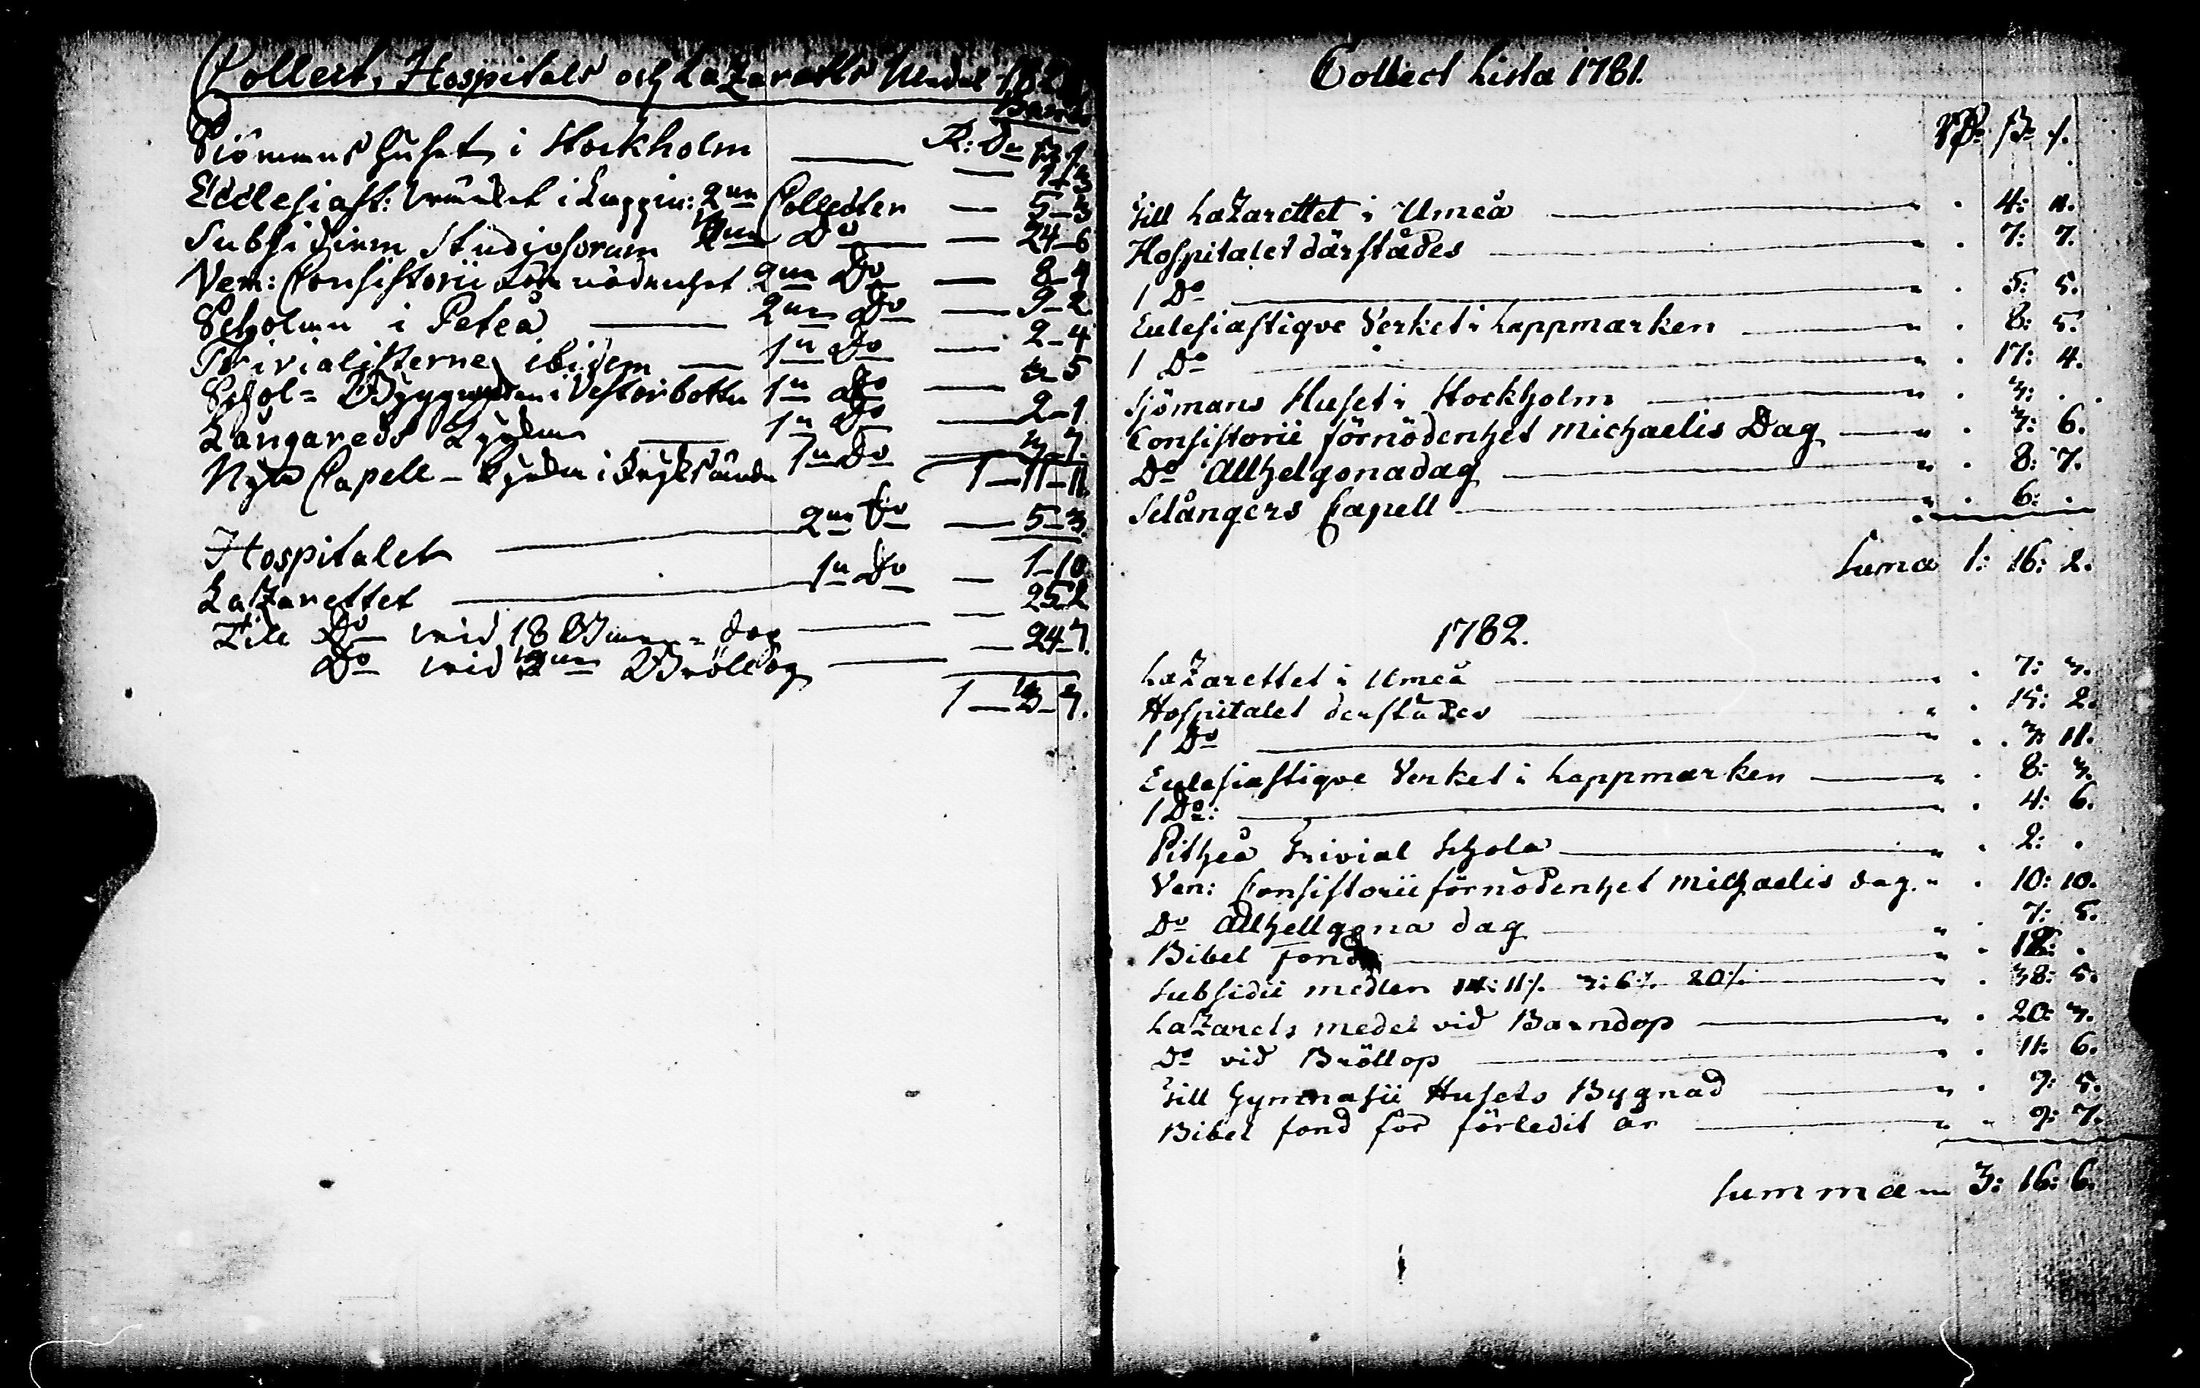 Collect, Hospitals och Lazaretts Medel
Banco
R: Dr ß /.
Siömans huset i Stockholm — 1-3
Ecclesiast: Wärcket i Lappm: 2ne Collecter — 5-3
Subsidium Studiosorum Do — 24-6
Ven: Consistorii Förnödenhet 2ne Do — 8-4
Scholan i Piteå — 2ne Do — 9-2
Trivialisterne ibidem — 1n Do — 2-4
Schol= Byggnaden i Vesterbotten 1n Do — 5
Långareds Kyrka — 1n Do — 2-1
Nya Capell-Kyrkan i 1n Do
1-11-11.
Hospitalet — 2ne Do — 5-3.
Lazarettet — 1n Do — 1-10
Till Do wid 18 Barn=dop — 25-2
Do wid Bröllop — 24-7.
1-13-7.
Collect Lista 1781.
RD: ß: /.
Till Lazarettet i Umeå — 4: 11.
Hospitalet därstädes — 7: 7.
1 Do — 5: 5.
Eclesiastiqve Verket i Lappmarken — 8: 5.
1 Do — 17: 4.
Sjömans Huset i Stockholm — 3: .
Consistorii förnödenhet Michaelis Dag — 3: 6.
Do Allhelgonadag — 8: 7.
Selångers Capell — 6: .
Suma 1: 16: 2.
1782.
Lazarettet i Umeå — 7: 3.
Hospitalet derstädes — 15: 2.
1 Do — 3: 11.
Eclesiastiqve Verket i Lappmarken — 8: 3.
1 Do: — 4: 6.
Pitheå Trivial Schola — 2: .
Ven: Consistorii förnödenhet Michaelis dag. 10: 10.
Do Allhellgona dag — 7: 5.
Bibel fond — 18: .
Subsidii medlen 14: 11 /. 3: 6 /. 20 /. — 38: 5.
Lazarets medel vid Barndop — 20: 3.
Do vid Bröllop — 11: 6.
Till Gymnasii Husets Bygnad — 9: 5.
Bibel fond för förledit år — 9: 7.
Summa 3: 16: 6.